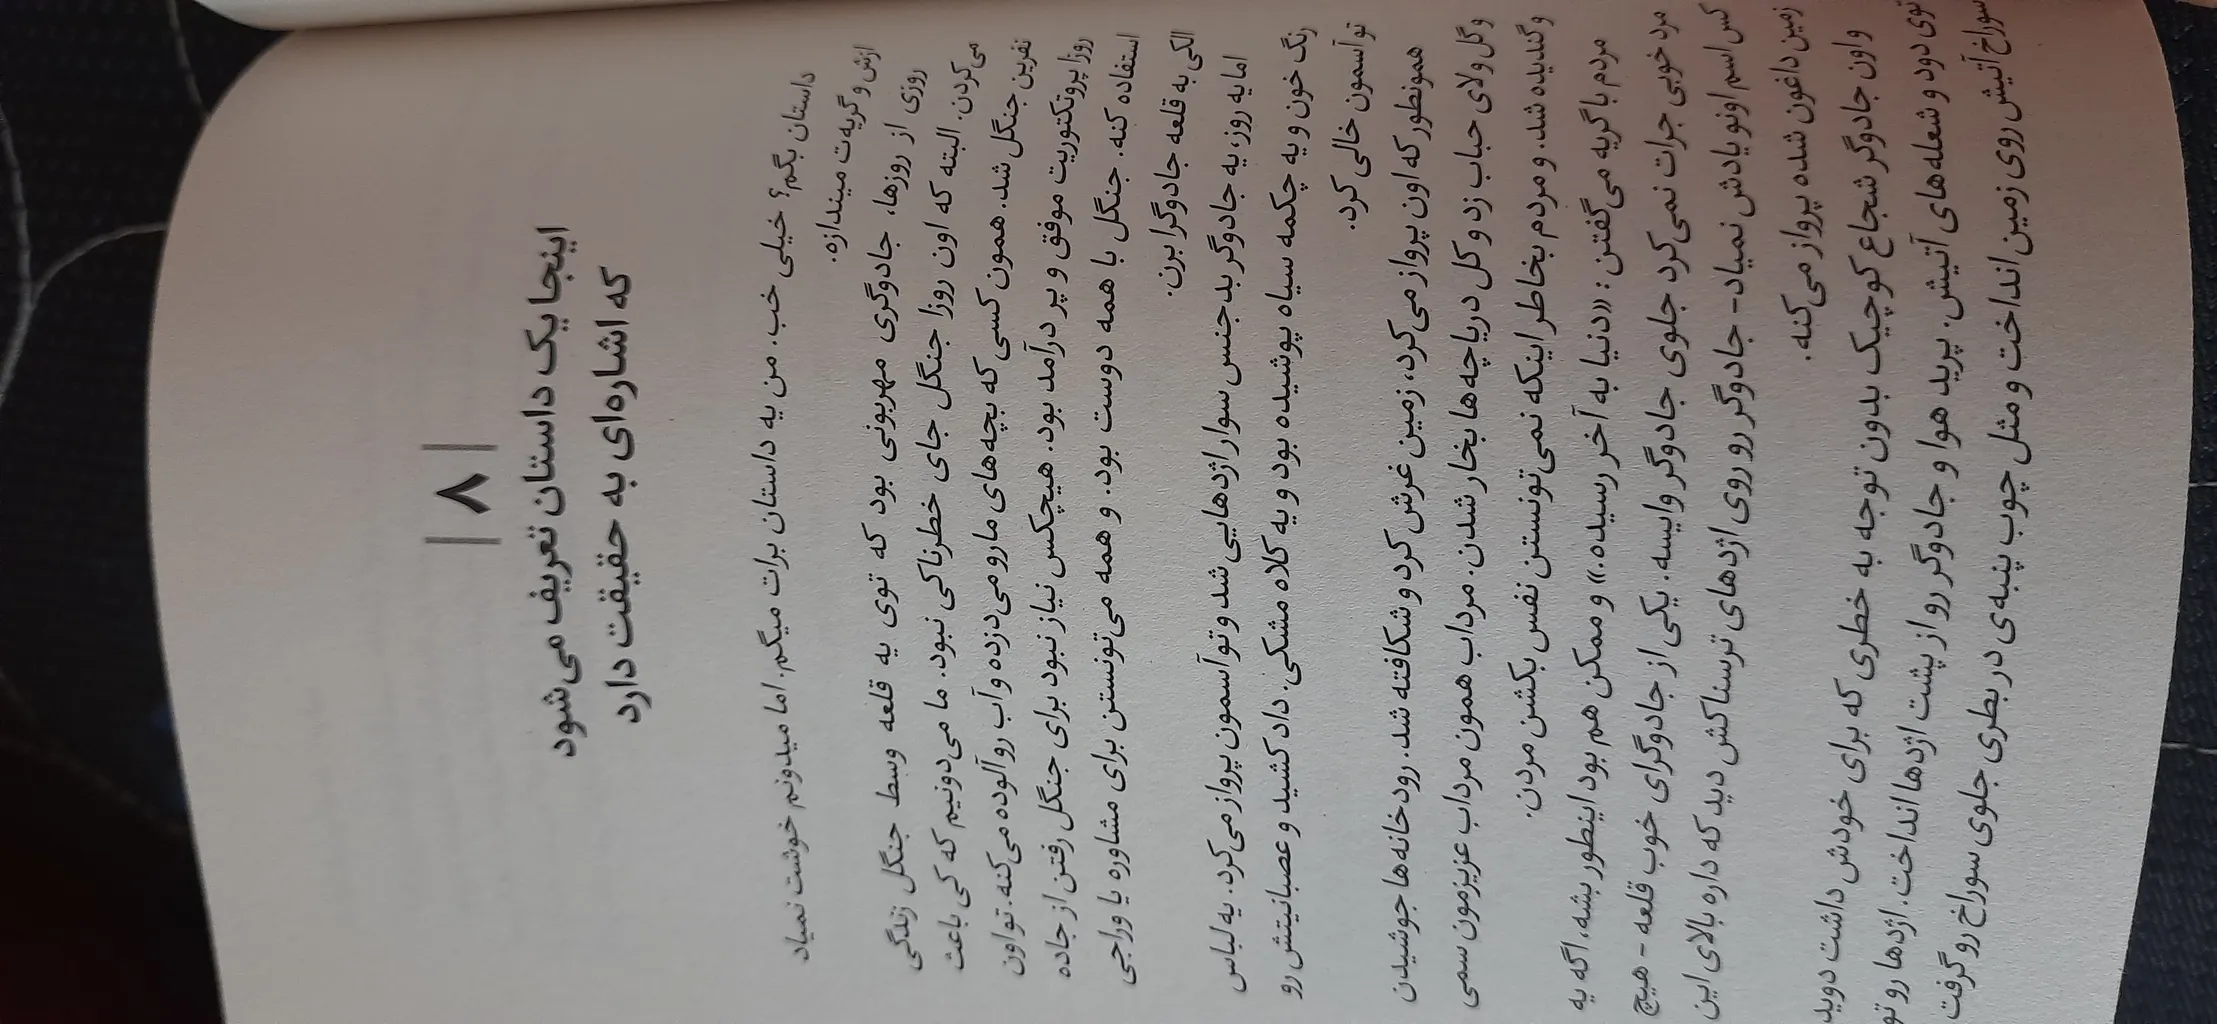 | ۸ |
اینجا یک داستان تعریف می‌شود
که اشاره‌ای به حقیقت دارد
داستان بگم؟ خیلی خب. من یه داستان برات میگم. اما میدونم خوشت نمیاد
ازش و گریه‌ت میندازه.
روزی از روزها، جادوگری مهربونی بود که توی یه قلعه وسط جنگل زندگی
می‌کردن. البته که اون روزا جنگل جای خطرناکی نبود. ما می‌دونیم که کی باعث
نفرین جنگل شد. همون کسی که بچه‌های مارو می‌دزده و آب رو آلوده می‌کنه. تو اون
روزا پروتکتوریت موفق و پر درآمد بود. هیچکس نیاز نبود برای جنگل رفتن از جاده
استفاده کنه. جنگل با همه دوست بود. و همه می‌تونستن برای مشاوره یا وراجی
الکی به قلعه جادوگرا برن.
اما یه روز، یه جادوگر بدجنس سوار اژدهایی شد و تو آسمون پرواز می‌کرد. یه لباس
رنگ خون و یه چکمه سیاه پوشیده بود و یه کلاه مشکی. داد کشید و عصبانیتش رو
تو آسمون خالی کرد.
همونطور که اون پرواز می‌کرد، زمین غرش کرد و شکافته شد. رودخانه‌ها جوشیدن
و گل ولای حباب زد و کل دریاچه‌ها بخار شدن. مرداب همون مرداب عزیزمون سمی
و گندیده شد. و مردم بخاطر اینکه نمی‌تونستن نفس بکشن مردن.
مردم با گریه می‌گفتن: «دنیا به آخر رسیده.» و ممکن هم بود اینطور بشه، اگه یه
مرد خوبی جرات نمی‌کرد جلوی جادوگر وایسه. یکی از جادوگرای خوب قلعه - هیچ
کس اسم اونو یادش نمیاد- جادوگر رو روی اژدهای ترسناکش دید که داره بالای این
زمین داغون شده پرواز می‌کنه.
و اون جادوگر شجاع کوچیک بدون توجه به خطری که برای خودش داشت دوید
توی دود و شعله‌های آتیش. پرید هوا و جادوگر رو از پشت اژدها انداخت. اژدها رو تو
سوراخ آتیش روی زمین انداخت و مثل چوب پنبه‌ی در بطری جلوی سوراخ رو گرفت